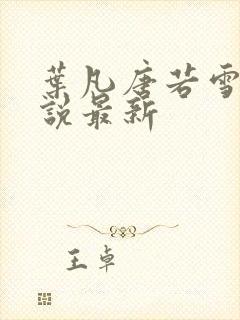 葉凡唐若雪
說最新
王卓